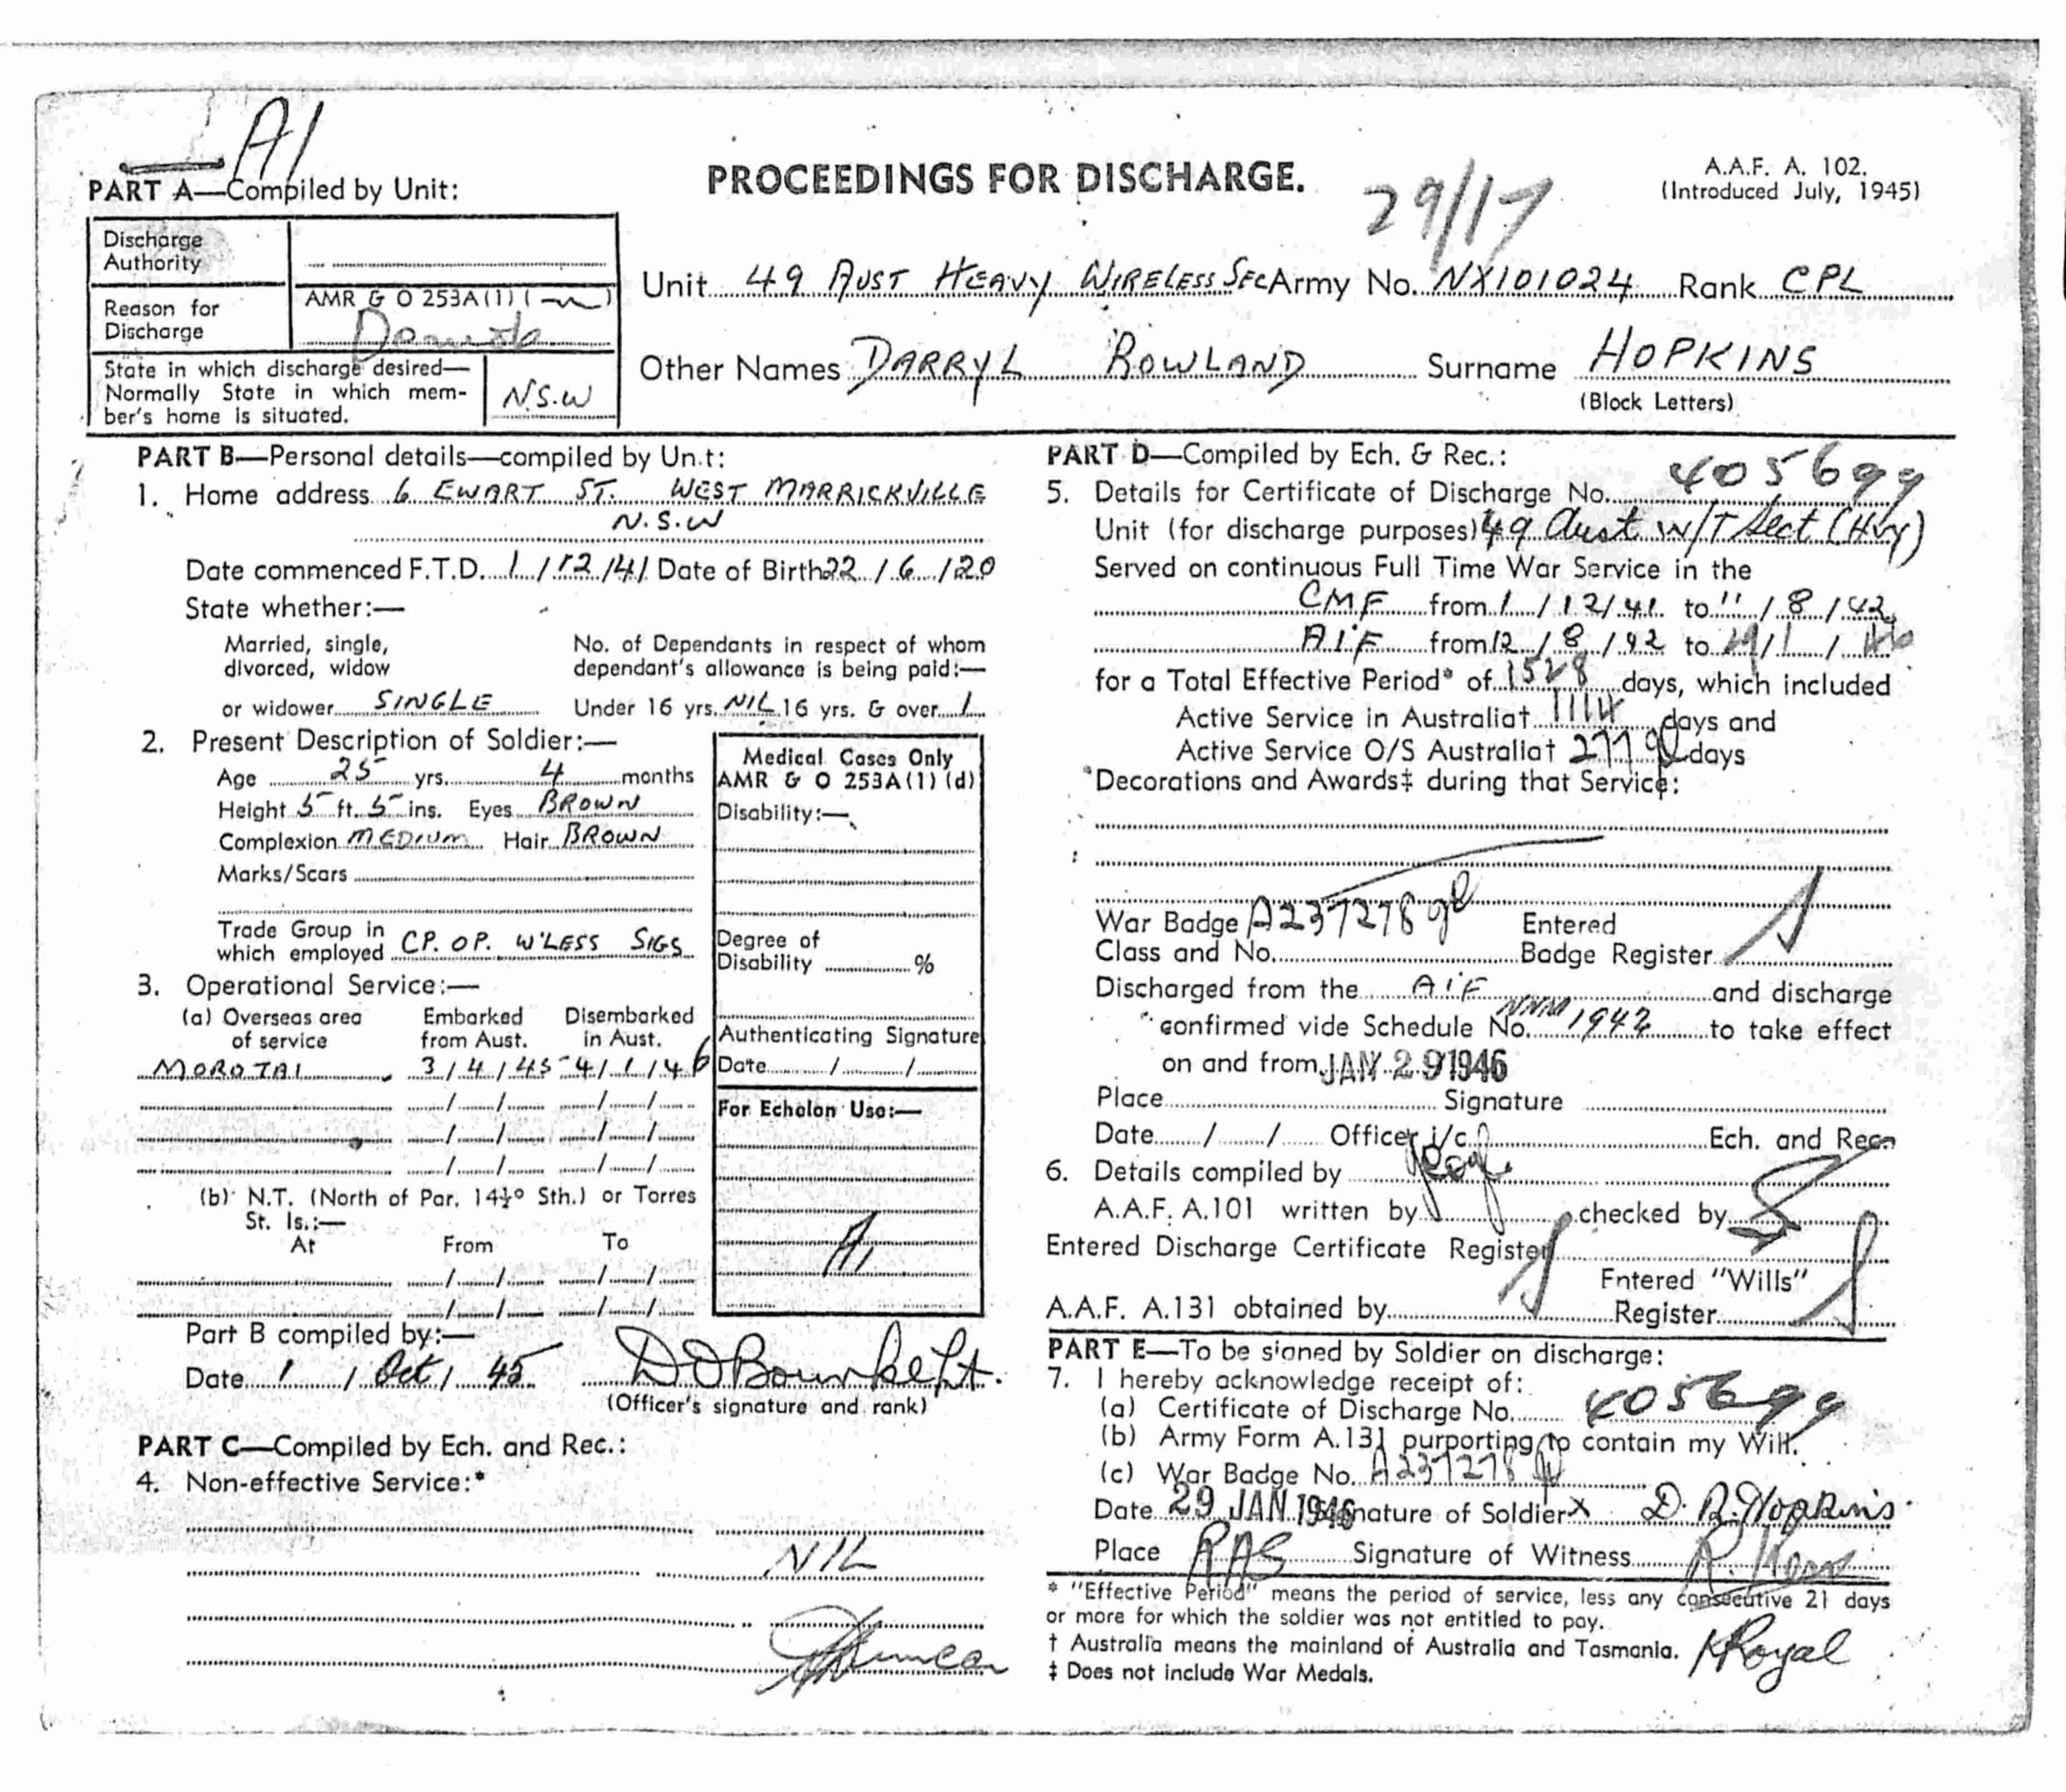 A1
PART A—Compiled by Unit:
PROCEEDINGS FOR DISCHARGE.
29/17
A.A.F. A. 102.
(Introduced July, 1945)
Discharge
Authority
Reason for
Discharge
AMR & O 253A(1) ( )
Demob
State in which discharge desired—
Normally State in which mem-
ber's home is situated.
N.S.W
Unit 49 AUST HEAVY WIRELESS SEC Army No. NX101024 Rank CPL
Other Names DARRYL ROWLAND Surname HOPKINS
(Block Letters)
PART B—Personal details—compiled by Un.t:
1. Home address 6 EWART ST. WEST MARRICKVILLE
N.S.W
Date commenced F.T.D. 1/12/41 Date of Birth 22/6/20
State whether:—
Married, single,
divorced, widow
or widower SINGLE
No. of Dependants in respect of whom
dependant's allowance is being paid:—
Under 16 yrs. NIL 16 yrs. & over 1
2. Present Description of Soldier:—
Age 25 yrs. 4 months
Height 5 ft. 5 ins. Eyes BROWN
Complexion MEDIUM Hair BROWN
Marks/Scars
Trade Group in
which employed CP. OP. W'LESS SIGS
Medical Cases Only
AMR & O 253A(1)(d)
Disability:—
Degree of
Disability %
Authenticating Signature
Date / /
For Echelon Use:—
A1
3. Operational Service:—
(a) Overseas area
of service
Embarked
from Aust.
Disembarked
in Aust.
MOROTAI 3/4/45 4/1/46
(b) N.T. (North of Par. 14½° Sth.) or Torres
St. Is.:—
At From To
Part B compiled by:—
Date 1 / Oct / 45 D O Bourke Lt.
(Officer's signature and rank)
PART C—Compiled by Ech. and Rec.:
4. Non-effective Service:*
NIL
PART D—Compiled by Ech. & Rec.:
5. Details for Certificate of Discharge No. 405699
Unit (for discharge purposes) 49 Aust W/T Sect (Hvy)
Served on continuous Full Time War Service in the
CMF from 1/12/41 to 11/8/42
AIF from 12/8/42 to 29/1/46
for a Total Effective Period* of 1528 days, which included
Active Service in Australia† 1114 days and
Active Service O/S Australia† 277 days
Decorations and Awards‡ during that Service:
War Badge A237278
Class and No.
Entered
Badge Register
Discharged from the AIF and discharge
confirmed vide Schedule No. NNM 1942 to take effect
on and from JAN 29 1946
Place Signature
Date / / Officer i/c Ech. and Rec.
6. Details compiled by
A.A.F. A.101 written by checked by
Entered Discharge Certificate Register
Entered "Wills"
A.A.F. A.131 obtained by Register
PART E—To be signed by Soldier on discharge:
7. I hereby acknowledge receipt of:
(a) Certificate of Discharge No. 405699
(b) Army Form A.131 purporting to contain my Will.
(c) War Badge No. A237278
Date 29 JAN 1946 Signature of Soldier X D. R. Hopkins.
Place RAS Signature of Witness
* "Effective Period" means the period of service, less any consecutive 21 days
or more for which the soldier was not entitled to pay.
† Australia means the mainland of Australia and Tasmania.
‡ Does not include War Medals.
Royal